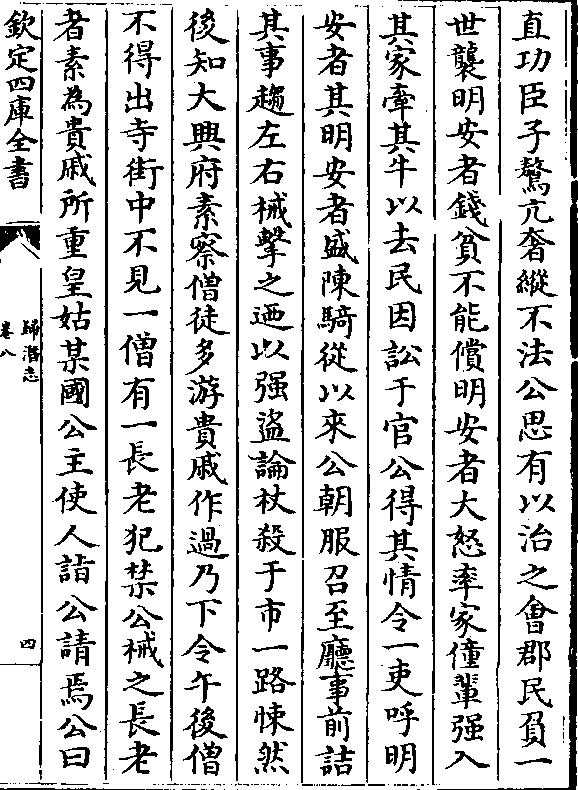 直功臣子驁亢奢縱不法公思有以治之會郡民負一
世襲明安者錢貧不能償明安者大怒率家僮輩强入
其家牽其牛以去民因訟于官公得其情令一吏呼明
安者其明安者盛陳騎從以來公朝服召至廳事前詰
其事趨左右械擊之廼以强盜論杖殺于市一路悚然
後知大興府素察僧徒多游貴戚作過乃下令午後僧
不得出寺街中不見一僧有一長老犯禁公械之長老
者素為貴戚所重皇姑某國公主使人詣公請焉公曰
欽定四庫全書
歸潛志
卷八
四